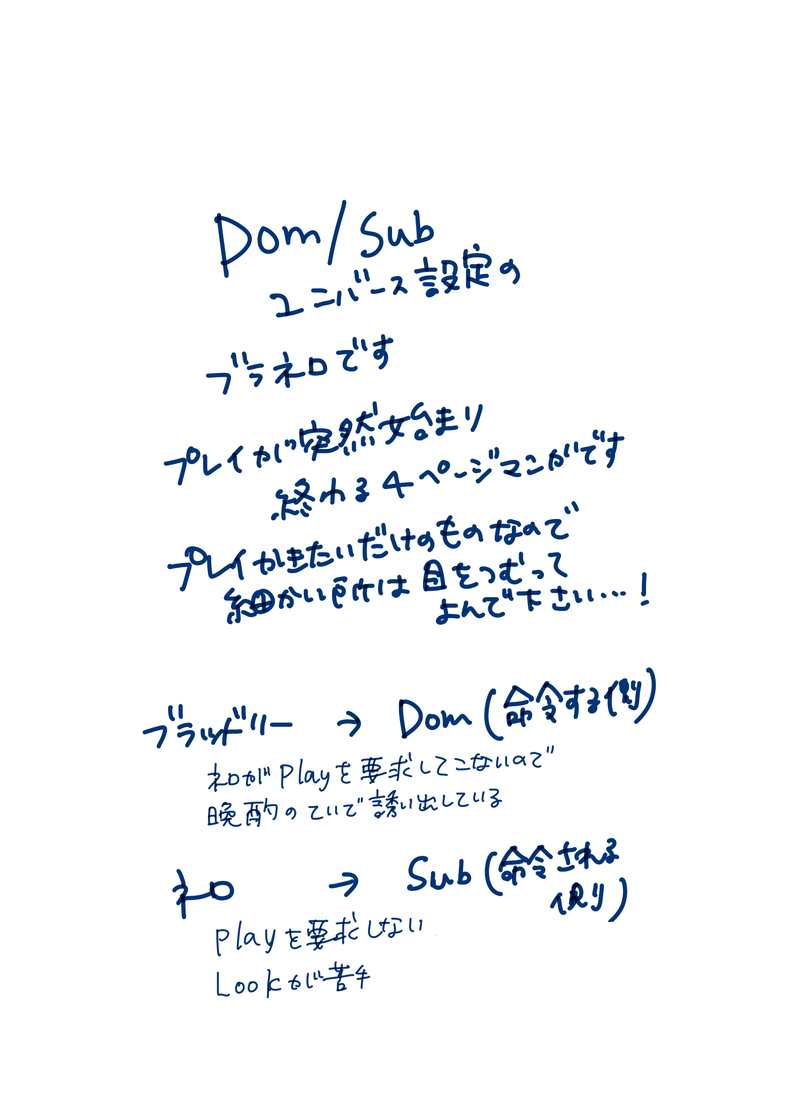 Dom/Sub
ユニバース設定の
ブラネロです
プレイが突然始まり
終わる4ページマンガです
プレイかきたいだけのものなので
細かい所は目をつむって
よんで下さい…!
ブラッドリー → Dom(命令する側)
ネロがPlayを要求してこないので
晩酌のていで誘い出している
ネロ → Sub(命令される
側)
Playを要求しない
Lookが苦手